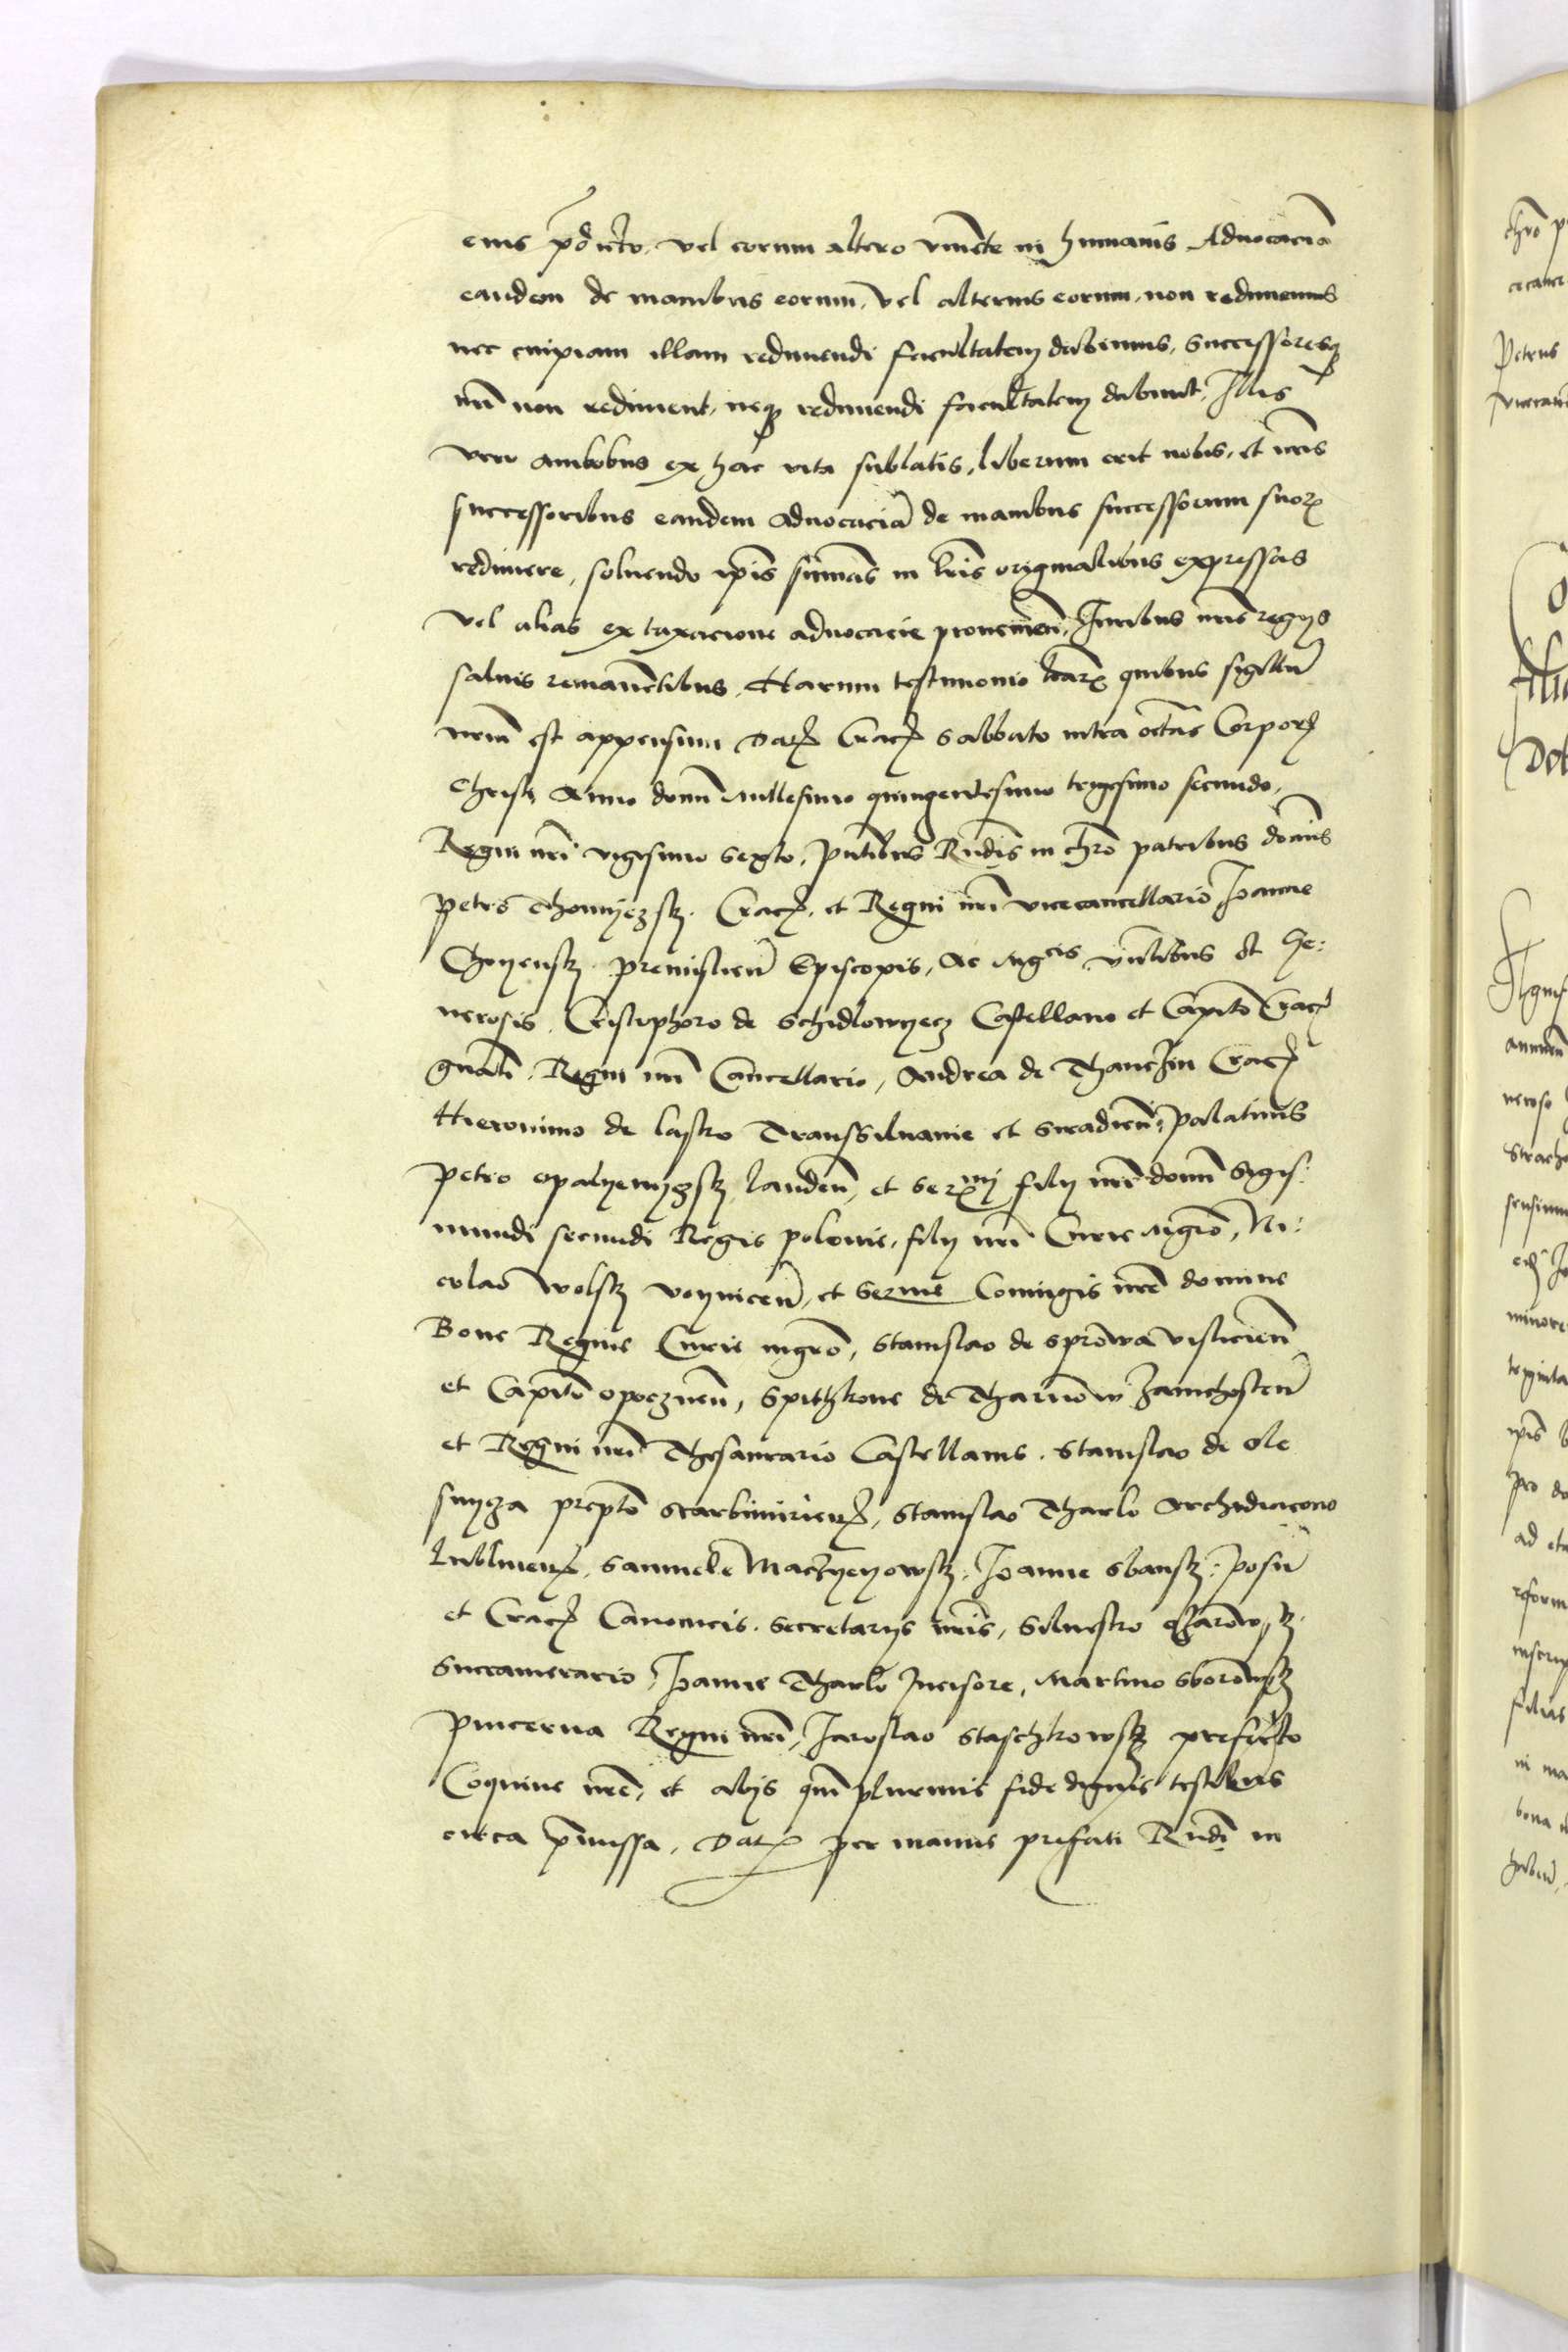 eius p̄dicto, vel eorum altero viuēte in humanis Aduocaciā
eandem de manibus eorum, vel alterius eorum, non redimemus
nec cuipiam illam redimendi facultatem dabimus, successoresq3
nrī non rediment, neq3 redimendi facultatem dabunt, Illis
vero ambobus ex hac vita sublatis, liberum erit nobis, et nrīs
successoribus eandem aduocaciā de manibus successorum suorꝝ
redimere, soluendo ip̄is sūmas in lrīs originalibus expressas
Vel alias ex taxacione aduocacie prouenien̄, Iuribus nrīs regijs
saluis remanētibus, Harum testimonio lrarꝝ quibus sigillū
nrūm est appensum Datꝝ Cracꝝ sabbato intra octāc Corporꝭ
Christi Anno domī Millesimo quingentesimo trigesimo secundo,
Regni nrī vigesimo sexto, pn̄tibus Rn̄dis in chrō patribus domīs
Petro Thomyczkj. Cracꝝ. et Regni nrī vicecancellario Ioanne
Choyenskj premislien̄ Episcopis, Ac Mgcīs vn̄libus et Ge:
nerosis, Cristophoro de Schidlowyecz Castellano et Capitō Cracꝝ
gnāli, Regni nrī Cancellario, Andrea de Thanczin Cracꝝ
Hieronimo de lasko Transsiluanie et siradien̄: Palatinis
Petro opalyenyczskj landen̄, et serꝫmj filij nrī domī Sigis:
mundi secundi Regis polonie, filij nrī Curie Mgrō, Ni:
colao Wolskj voynicen̄, et serme Coniugis nrē domine
Bone Regine Curie mgrō, Stanislao de sprowa visliciēn
et Capitō opocznen̄, Spithkone de Tharnow Zawichosten̄
et Regni nrī Thesaurario Castellanis. Stanislao de Ole
snycza preptō scarbimirienꝝ, Stanislao Tharlo Archidiacono
Lublinenꝝ, Samuele Maczyeyowskj, Ioanne sbanskj: posn̄
et Cracꝝ Canonicis. Secretarijs nrīs, Siluestro ozarowskj.
Succamerario, Ioanne Tharlo Incisore, Martino sborowskj
Pincerna Regni nrī, Iaroslao Staschkowskj prefecto
Coquine nrē, et alijs q̄m plurimis fide dignis testibus
circa p̄missa. Datꝝ per manus prefati Rn̄di in